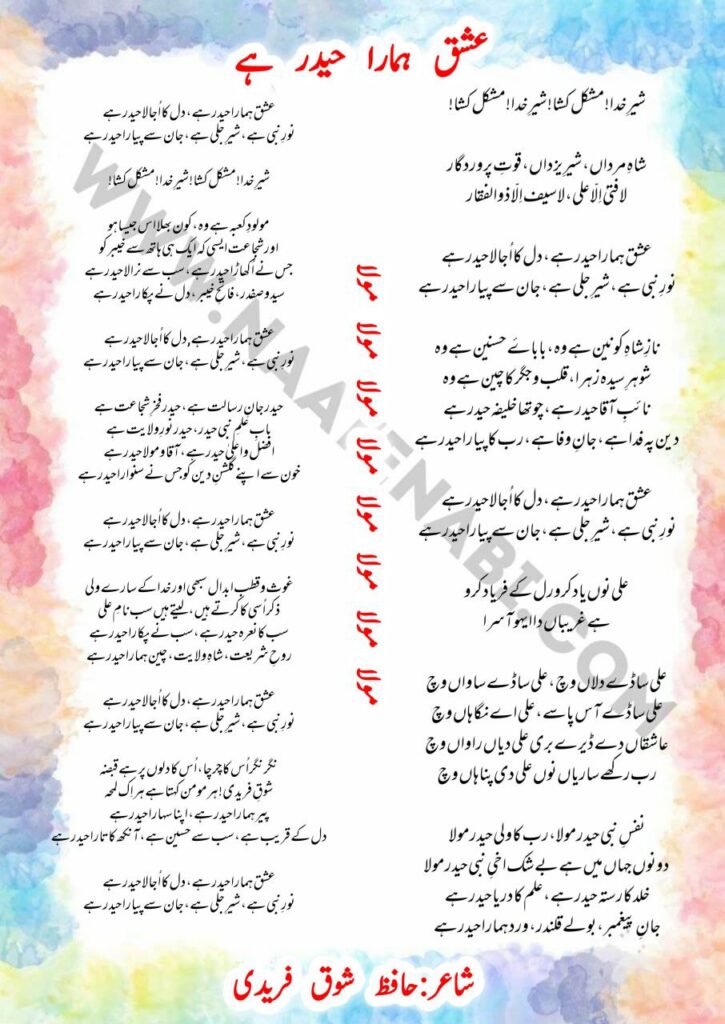 عشق ہمارا حیدر ہے
شیرِ خدا! مشکل کشا! شیرِ خدا! مشکل کشا!
شاہِ مرداں، شیرِ یزداں، قوتِ پروردگار
لا فتیٰ اِلّا علی، لا سیف اِلّا ذوالفقار
عشق ہمارا حیدر ہے، دل کا اُجالا حیدر ہے
نورِ نبی ہے، شیرِ جلی ہے، جان سے پیارا حیدر ہے
نازِ شاہِ کونین ہے وہ، بابائے حسنین ہے وہ
شوہرِ سیدہ زہرا، قلب و جگر کا چین ہے وہ
نائبِ آقا حیدر ہے، چوتھا خلیفہ حیدر ہے
دین پہ فدا ہے، جانِ وفا ہے، رب کا پیارا حیدر ہے
عشق ہمارا حیدر ہے، دل کا اُجالا حیدر ہے
نورِ نبی ہے، شیرِ جلی ہے، جان سے پیارا حیدر ہے
علی نوں یاد کرو رل کے فریاد کرو
ہے غریباں دا ایہو آسرا
علی ساڈے دلاں وچ، علی ساڈے ساواں وچ
علی ساڈے آس پاسے، علی اے نگاہاں وچ
عاشقاں دے ڈیرے بری علی دیاں راواں وچ
رب رکھے ساریاں نوں علی دی پناہاں وچ
نفسِ نبی حیدر مولا، رب کا ولی حیدر مولا
دونوں جہاں میں ہے بے شک اخیِ نبی حیدر مولا
خلد کا رستہ حیدر ہے، علم کا دریا حیدر ہے
جانِ پیغمبر، بولے قلندر، ورد ہمارا حیدر ہے
مولا مولا مولا مولا مولا مولا مولا مولا
عشق ہمارا حیدر ہے، دل کا اُجالا حیدر ہے
نورِ نبی ہے، شیرِ جلی ہے، جان سے پیارا حیدر ہے
شیرِ خدا! مشکل کشا! شیرِ خدا! مشکل کشا!
مولودِ کعبہ ہے وہ، کون بھلا اس جیسا ہو
اور شجاعت ایسی کہ ایک ہی ہاتھ سے خیبر کو
جس نے اکھاڑا حیدر ہے، سب سے نرالا حیدر ہے
سید و صفدر، فاتحِ خیبر، دل نے پکارا حیدر ہے
عشق ہمارا حیدر ہے، دل کا اُجالا حیدر ہے
نورِ نبی ہے، شیرِ جلی ہے، جان سے پیارا حیدر ہے
حیدر جانِ رسالت ہے، حیدر فخرِ شجاعت ہے
بابِ علمِ نبی حیدر، حیدر نورِ ولایت ہے
افضل و اعلیٰ حیدر ہے، آقا و مولا حیدر ہے
خون سے اپنے گلشنِ دین کو جس نے سنوارا حیدر ہے
عشق ہمارا حیدر ہے، دل کا اُجالا حیدر ہے
نورِ نبی ہے، شیرِ جلی ہے، جان سے پیارا حیدر ہے
غوث و قطب ابدال سبھی اور خدا کے سارے ولی
ذکر اُسی کا کرتے ہیں، لیتے ہیں سب نامِ علی
سب کا نعرہ حیدر ہے، سب نے پکارا حیدر ہے
روحِ شریعت، شاہِ ولایت، چین ہمارا حیدر ہے
عشق ہمارا حیدر ہے، دل کا اُجالا حیدر ہے
نورِ نبی ہے، شیرِ جلی ہے، جان سے پیارا حیدر ہے
نگر نگر اُس کا چرچا، اُس کا دلوں پر ہے قبضہ
شوقِ فریدی! ہر مومن کہتا ہے ہر اک لمحہ
پیر ہمارا حیدر ہے، اپنا سہارا حیدر ہے
دل کے قریب ہے، سب سے حسین ہے، آنکھ کا تارا حیدر ہے
عشق ہمارا حیدر ہے، دل کا اُجالا حیدر ہے
نورِ نبی ہے، شیرِ جلی ہے، جان سے پیارا حیدر ہے
شاعر: حافظ شوق فریدی